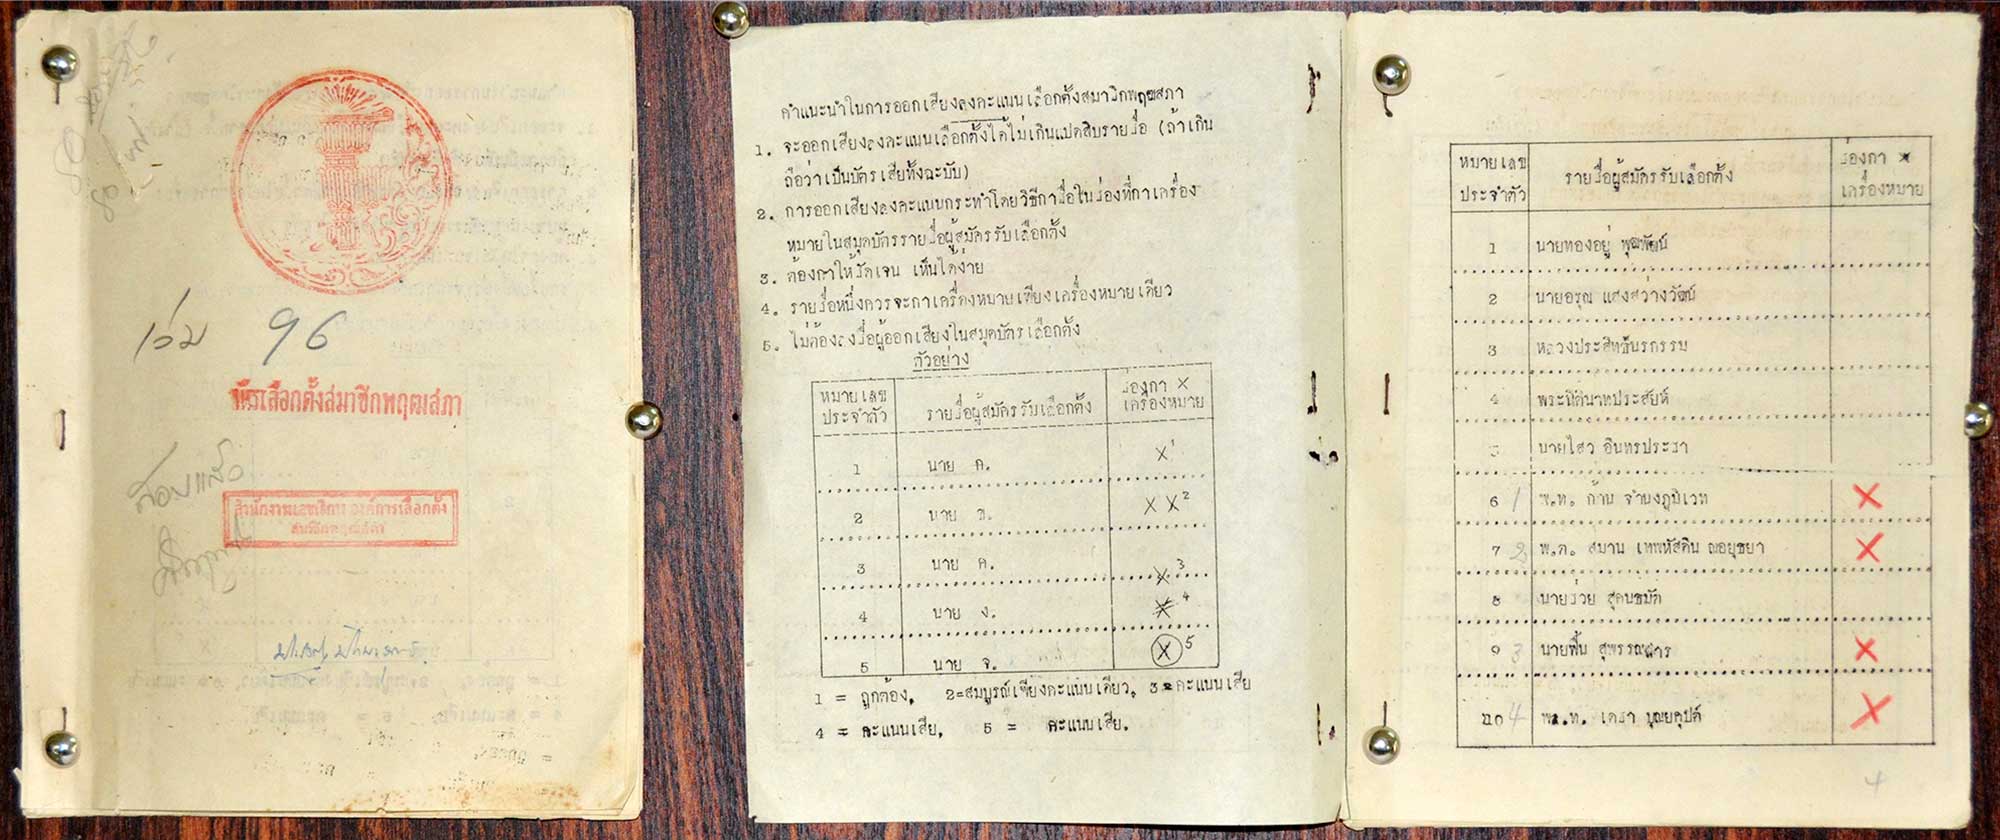 เล่ม 96
บัตรเลือกตั้งสมาชิกพฤฒสภา
สอบแล้ว
สำนักงานเลขาธิการ องค์การเลือกตั้ง
สมาชิกพฤฒสภา
คำแนะนำในการออกเสียงลงคะแนนเลือกตั้งสมาชิกพฤฒสภา
1. จะออกเสียงลงคะแนนเลือกตั้งได้ไม่เกินแปดสิบรายชื่อ (ถ้าเกิน
ถือว่าเป็นบัตรเสียทั้งฉะบับ)
2. การออกเสียงลงคะแนนกระทำโดยวิธีกาชื่อในช่องที่กาเครื่อง
หมายในสมุดบัตรรายชื่อผู้สมัครรับเลือกตั้ง
3. ต้องกาให้ชัดเจน เห็นได้ง่าย
4. รายชื่อหนึ่งควรจะกาเครื่องหมายเพียงเครื่องหมายเดียว
5. ไม่ต้องลงชื่อผู้ออกเสียงในสมุดบัตรเลือกตั้ง
ตัวอย่าง
หมายเลข ช่องกา ×
ประจำตัว รายชื่อผู้สมัครรับเลือกตั้ง เครื่องหมาย
1 นาย ก. × 1
2 นาย ข. × × 2
3 นาย ค. × 3
4 นาย ง. × 4
5 นาย จ. × 5
1 = ถูกต้อง, 2=สมบูรณ์เพียงคะแนนเดียว, 3=คะแนนเสีย
4 = คะแนนเสีย, 5 = คะแนนเสีย.
หมายเลข ช่องกา ×
ประจำตัว รายชื่อผู้สมัครรับเลือกตั้ง เครื่องหมาย
1 นายทองอยู่ พุฒพัฒน์
2 นายอรุณ แสงสว่างวัฒน์
3 หลวงประสิทธิ์นรกรรม
4 พระนิตินาทประสัยห์
5 นายไสว อินทรประชา
6 1 พ.ท. ก้าน จำนงภูมิเวท ×
7 2 พ.ต. สมาน เทพหัสดิน ณอยุธยา ×
8 นายช่วย สุคนธมัต
9 3 นายฟื้น สุพรรณสาร ×
10 4 พ.ท. เดรา บุณยคุปต์ ×
4